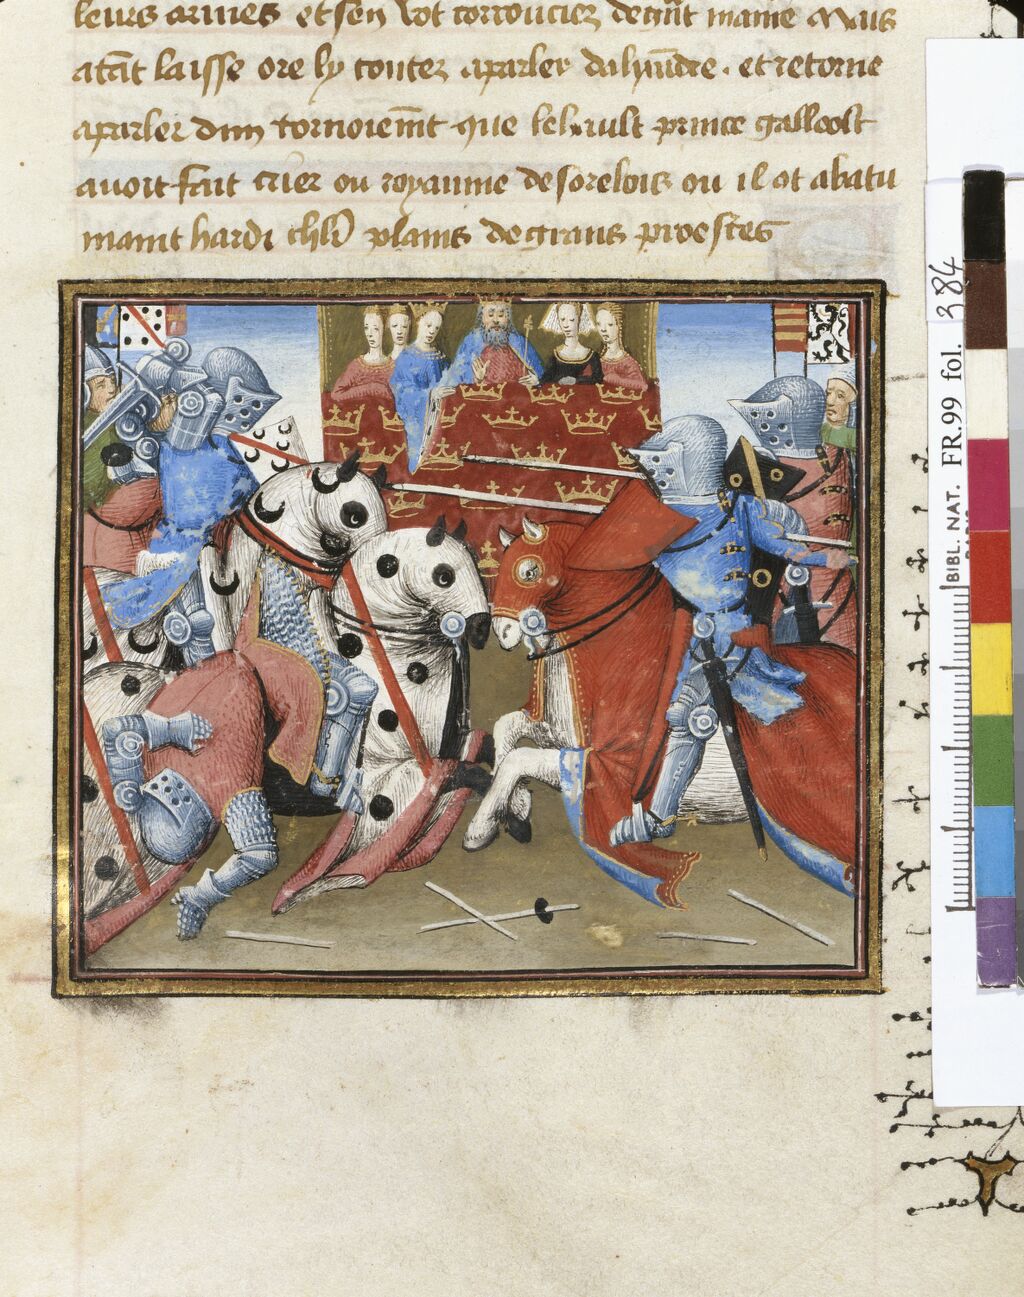 leurs armes et sen vot corrouciez decuer maine Mais
atāt laisse ore ly contes aparler dalixūdre . et retorne
aparler dun tornoiem̄t que le hault prince galleolt
avoit fait crier ou royaume de sorelois ou il ot abatu
maint hardi chlr̄ plains de grans proesces
BIBL. NAT. FR.99 fol. 384